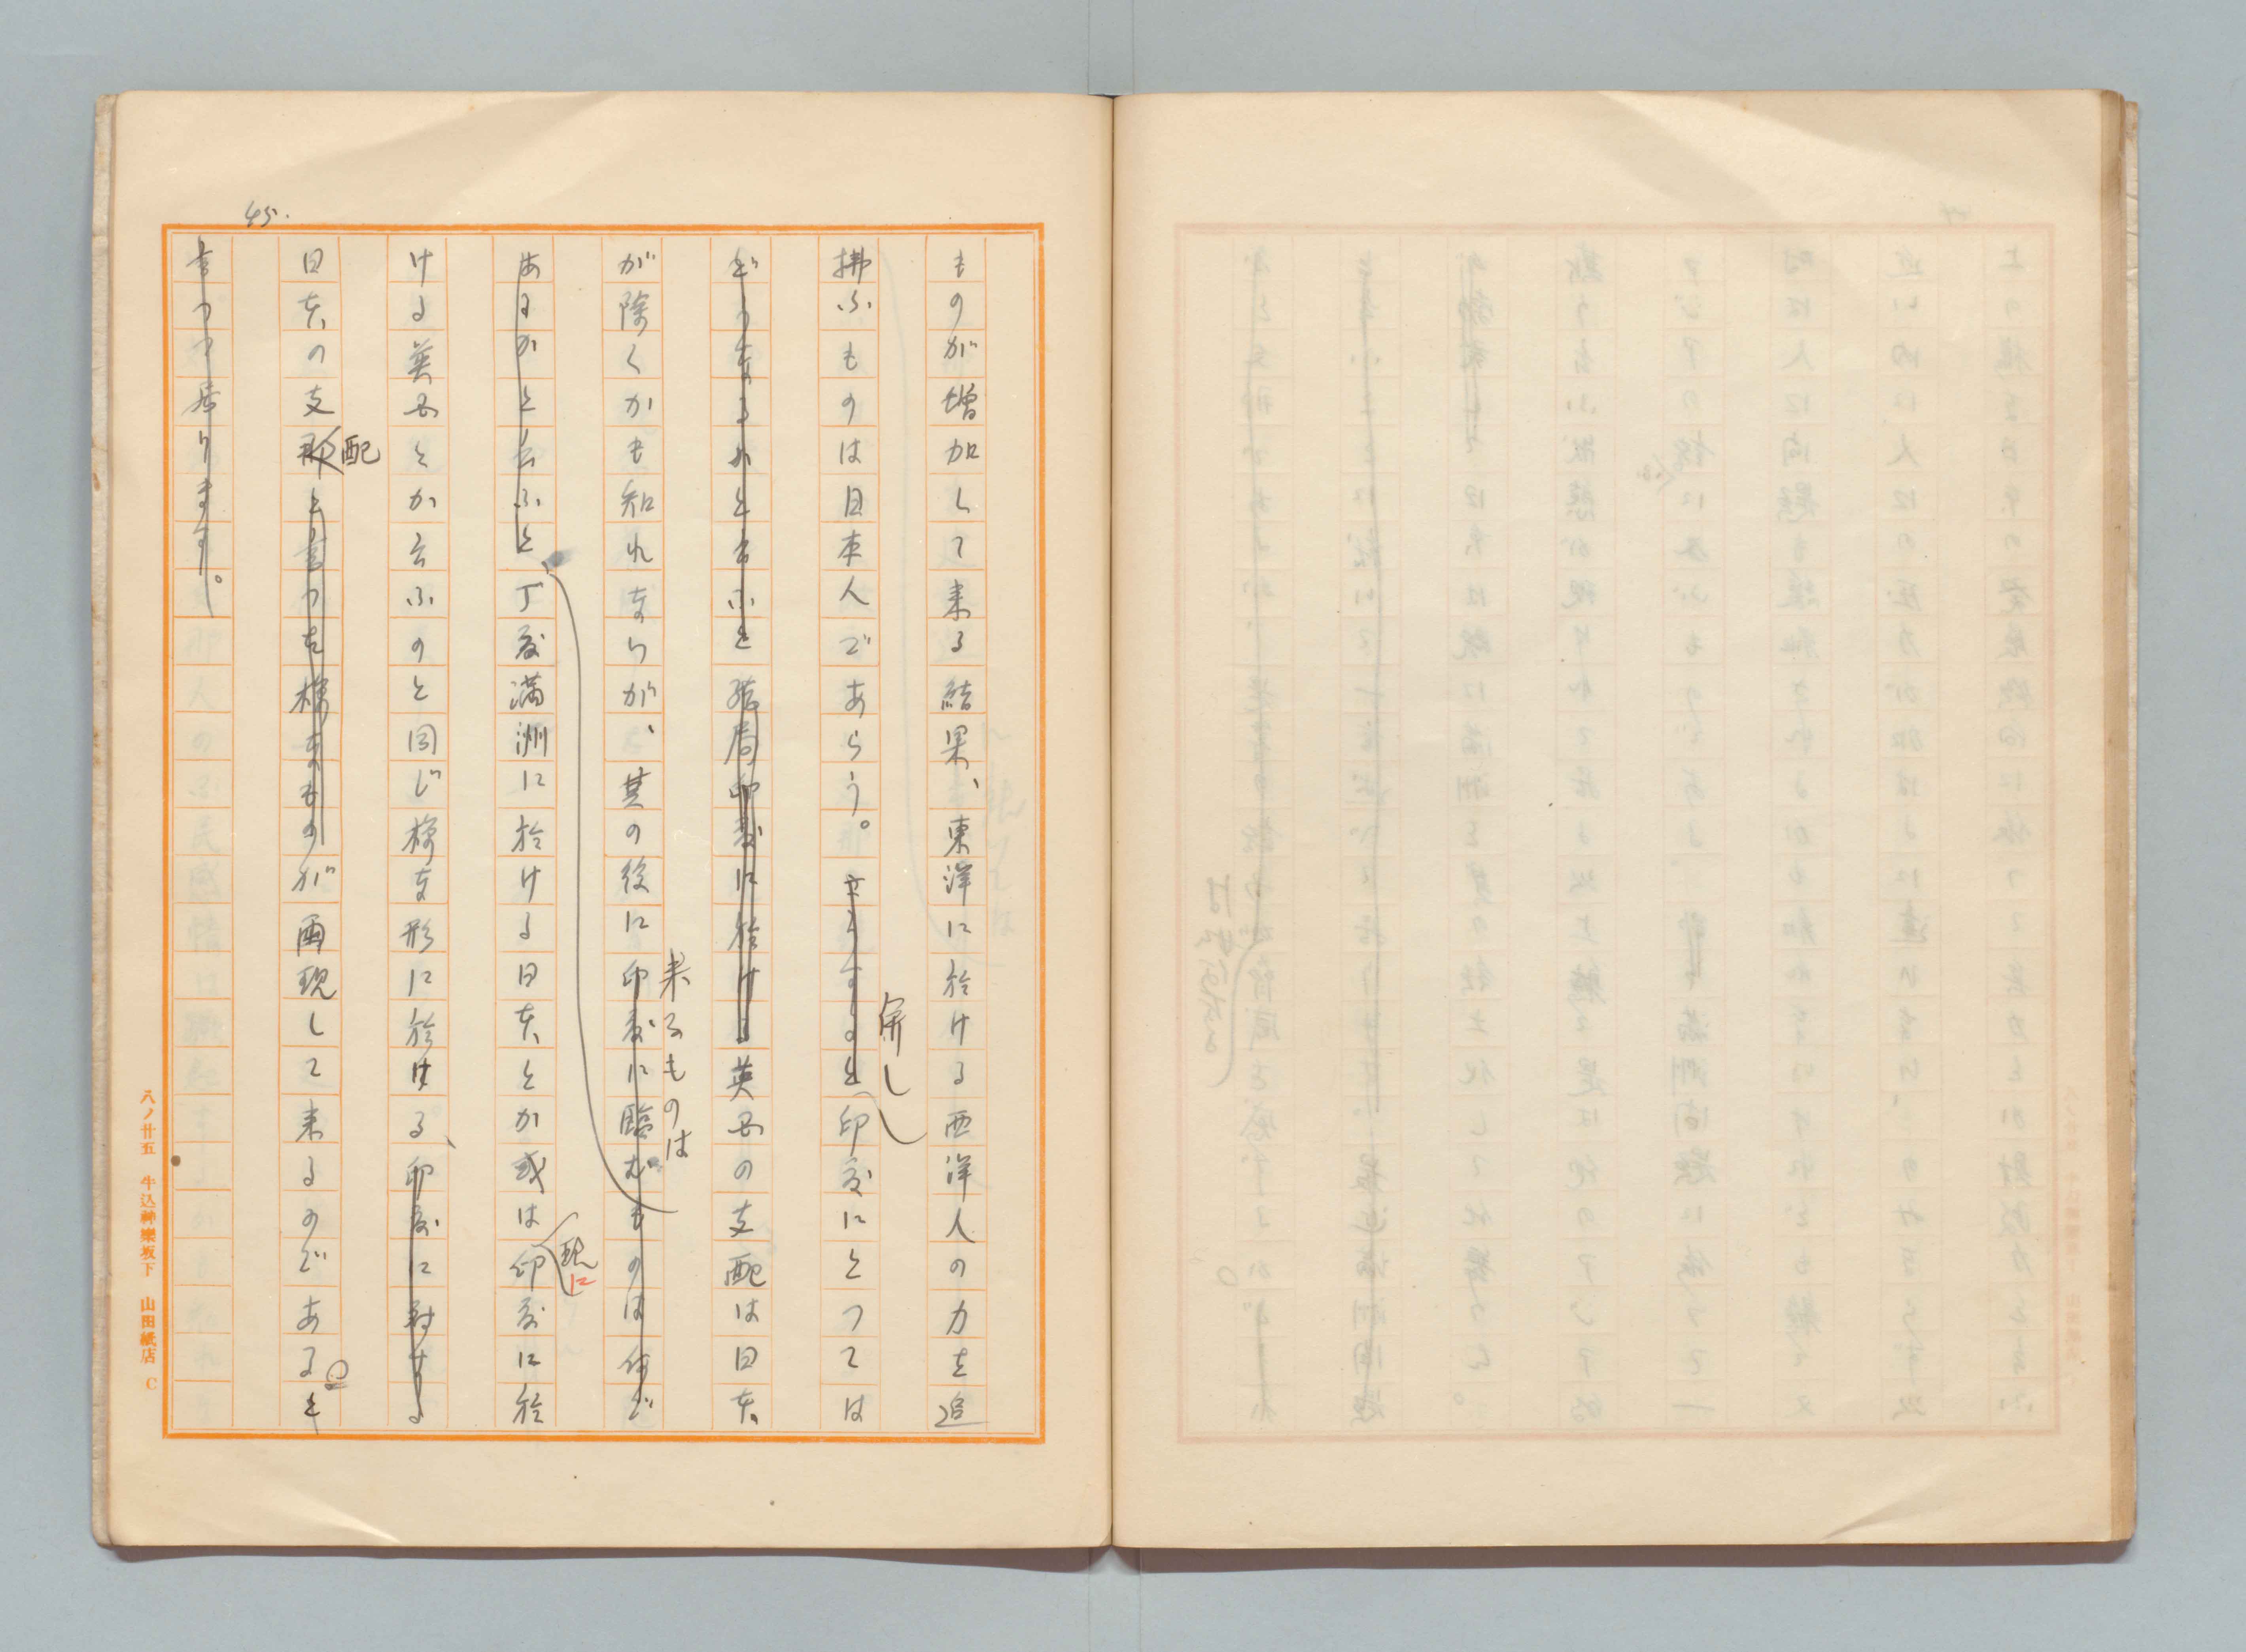 45.
ものが増加して来る結果、東洋に於ける西洋人の力を追
拂ふものは日本人であらう。さうすると印度にとつては
併し
どうなるかと云ふと結局印度に於ける英国の支配は日本
が除くかも知れないが、其の後に印度に臨むものは何で
来るものは
あるかと云ふと、丁度満洲に於ける日本とか或は印度に於
現に
ける英国とか云ふのと同じ様な形に於ける、印度に対する
日本の支那と言つた様なものが再現して来るのであると
配
言つて居ります。
八ノ廿五 牛込神樂坂下 山田紙店 C